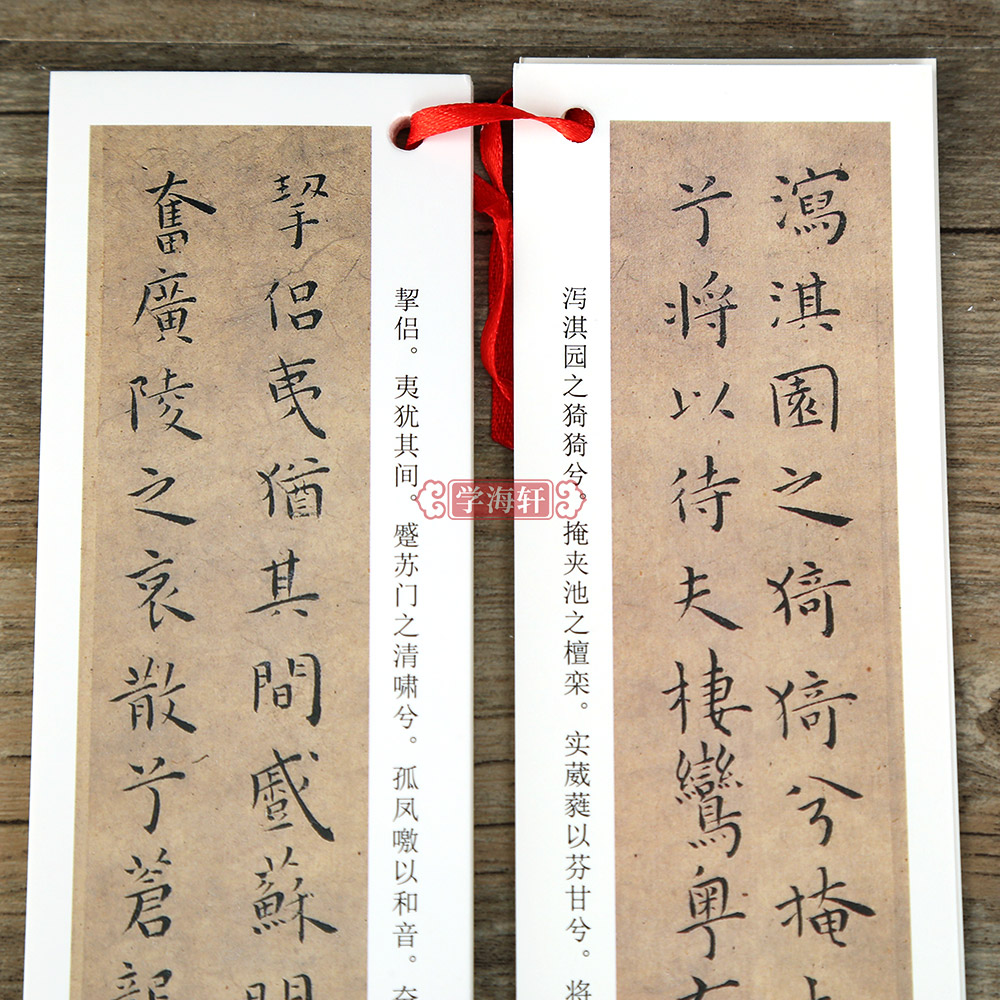 瀉淇園之猗猗兮掩
兮將以待夫棲鸞粤
泻淇园之猗猗兮。掩夹池之檀栾。实葳蕤以芬甘兮。将
挈侣。夷犹其间。蹙苏门之清啸兮。孤凤噭以和音。奋
挈侶夷猶其間蹙蘇門
奮廣陵之哀散兮蒼龍
学海轩